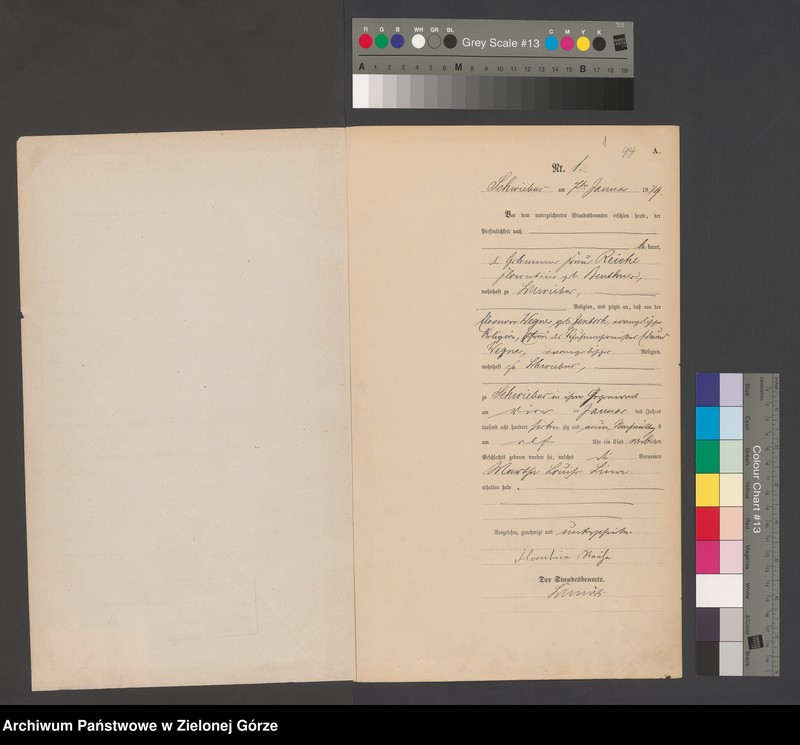 R G B WH GR BL
Grey Scale #13
C M Y K
A 1 2 3 4 5 6 M 8 9 10 11 12 13 14 15 B 17 18 19
1 94 A.
Nr. 1.
Schwiebus am 7ten Januar 1879.
Vor dem unterzeichneten Standesbeamten erschien heute, der
Persönlichkeit nach
bekannt,
Frau Reiche
geb.
wohnhaft zu Schwiebus,
Religion, und zeigte an, daß von der
Wegner, geb. Jentsch, evangelischer
Religion, Ehefrau des
Wegner, evangelischer Religion,
wohnhaft zu Schwiebus,
zu Schwiebus in ihrer Gegenwart
am vier ten Januar des Jahres
tausend acht hundert sieben zig und neun Vormittags
um elf Uhr ein Kind weiblichen
Geschlechts geboren worden sei, welches die Vornamen
Martha Louise
erhalten habe.
Vorgelesen, genehmigt und unterschrieben
Der Standesbeamte.
Colour Chart #13
Blue Cyan Green Yellow Red Magenta White 3/Color Black
Archiwum Państwowe w Zielonej Górze